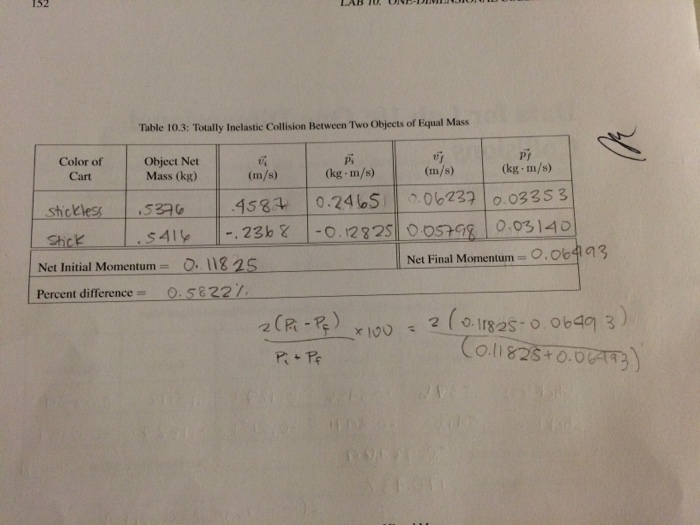 152 LAB 10. ONE-DIMENSIONAL
Table 10.3: Totally Inelastic Collision Between Two Objects of Equal Mass
Color of Cart Object Net Mass (kg) v⃗i (m/s) p⃗i (kg·m/s) v⃗f (m/s) p⃗f (kg·m/s)
stickless .5376 .4587 0.2465 0.06237 0.03353
Stick .5416 -.2368 -0.12825 0.05798 0.03140
Net Initial Momentum = 0.11825 Net Final Momentum = 0.06493
Percent difference = 0.5822%
2(Pi - Pf) x100 = 2(0.11825-0.06493)
Pi + Pf (0.11825+0.06493)